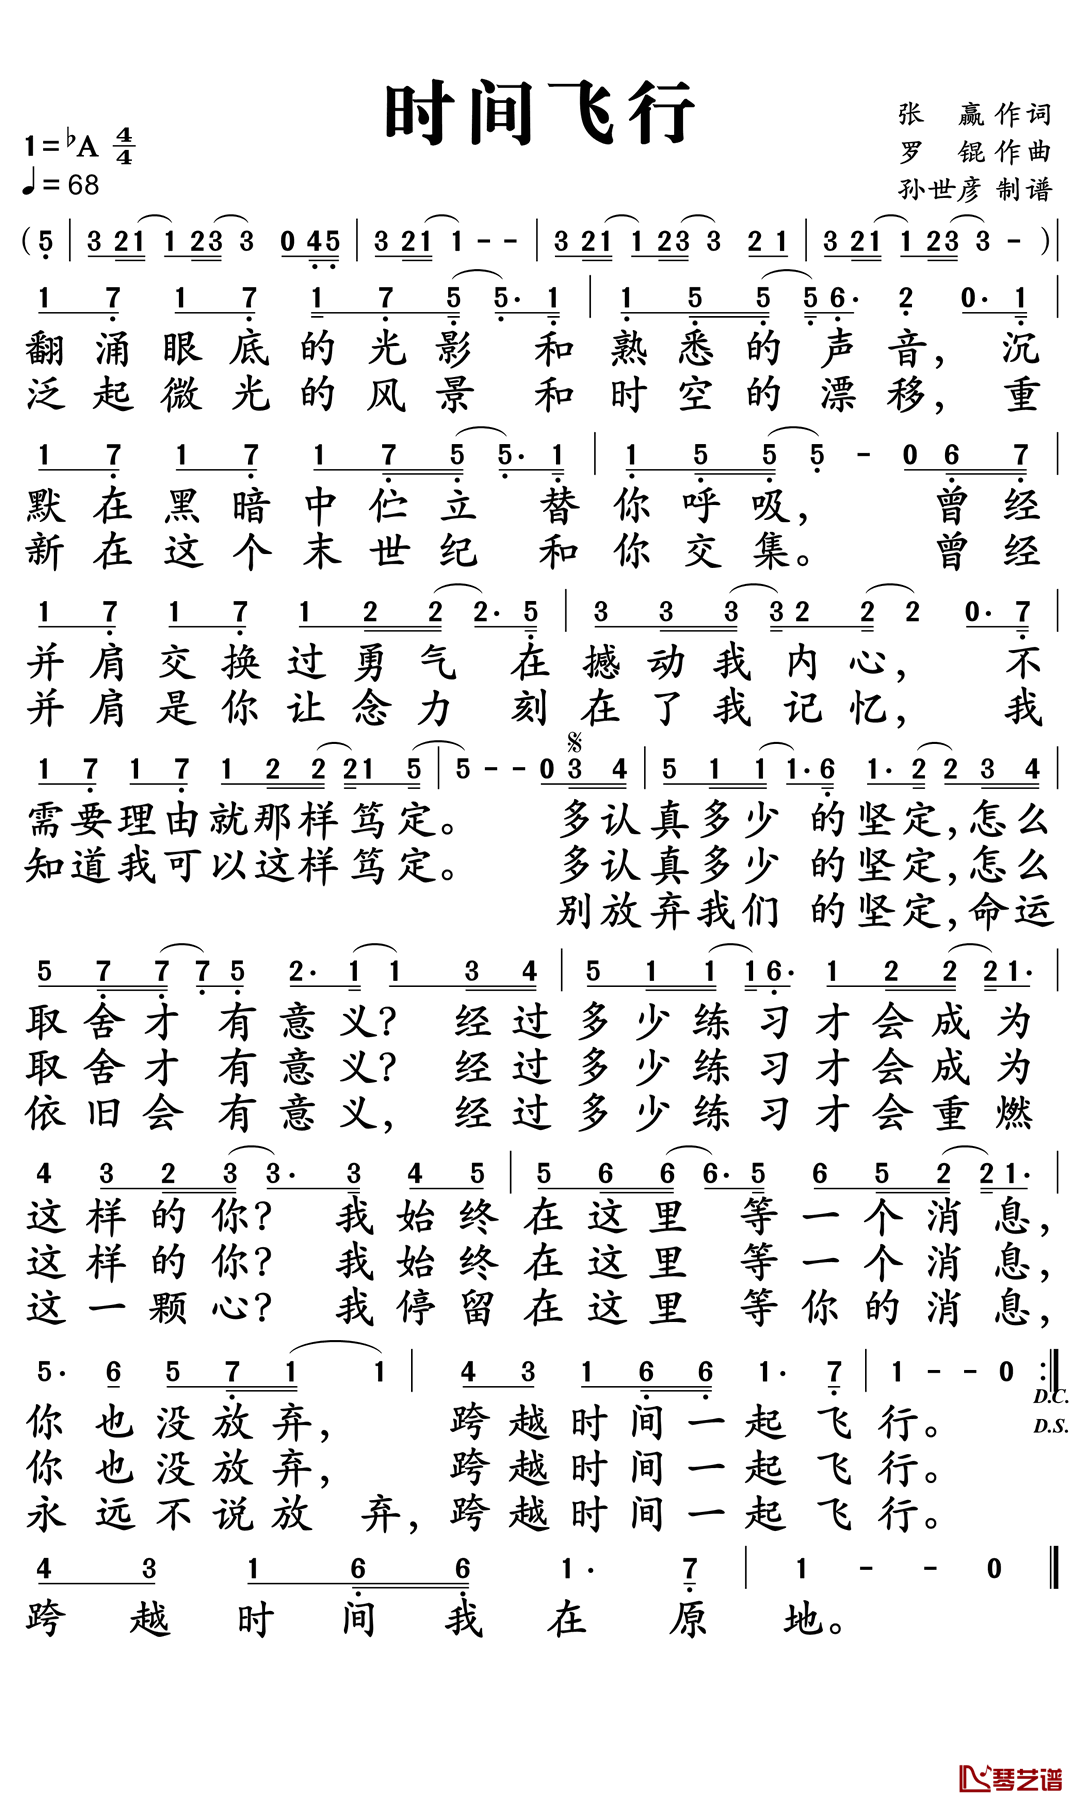 时间飞行
张 赢 作词
1=♭A 4/4
罗 锟 作曲
♩=68
孙世彦 制谱
(5 | 3 21 1 23 3 0 45 | 3 21 1 - - | 3 21 1 23 3 2 1 | 3 21 1 23 3 - )|
1 7 1 7 1 7 5 5· 1 | 1 5 5 5 6· 2 0· 1 |
翻涌眼底的光影 和熟悉的声音，沉
泛起微光的风景 和时空的漂移，重
1 7 1 7 1 7 5 5· 1 | 1 5 5 5 - 0 6 7 |
默在黑暗中伫立 替你呼吸， 曾经
新在这个末世纪 和你交集。 曾经
1 7 1 7 1 2 2 2· 5 | 3 3 3 3 2 2 2 0· 7 |
并肩交换过勇气 在撼动我内心， 不
并肩是你让念力 刻在了我记忆， 我
1 7 1 7 1 2 2 21 5 | 5 - - 0 3 4 | 5 1 1 1· 6 1· 2 2 3 4 |
需要理由就那样笃定。 多认真多少 的坚定，怎么
知道我可以这样笃定。 多认真多少 的坚定，怎么
别放弃我们 的坚定，命运
5 7 7 7 5 2· 1 1 3 4 | 5 1 1 1 6· 1 2 2 2 1· |
取舍才 有意义？ 经过多少练习才会成为
取舍才 有意义？ 经过多少练习才会成为
依旧会 有意义， 经过多少练习才会重燃
4 3 2 3 3· 3 4 5 | 5 6 6 6· 5 6 5 2 2 1· |
这样的你？ 我始终在这里 等一个消息，
这样的你？ 我始终在这里 等一个消息，
这一颗心？ 我停留在这里 等你的消息，
5· 6 5 7 1 1 | 4 3 1 6 6 1· 7 | 1 - - 0 :|
D.C.
你也没放弃， 跨越时间一起飞行。
D.S.
你也没放弃， 跨越时间一起飞行。
永远不说放 弃，跨越时间一起飞行。
4 3 1 6 6 1· 7 | 1 - - 0 ‖
跨越时间我在原地。
琴艺谱